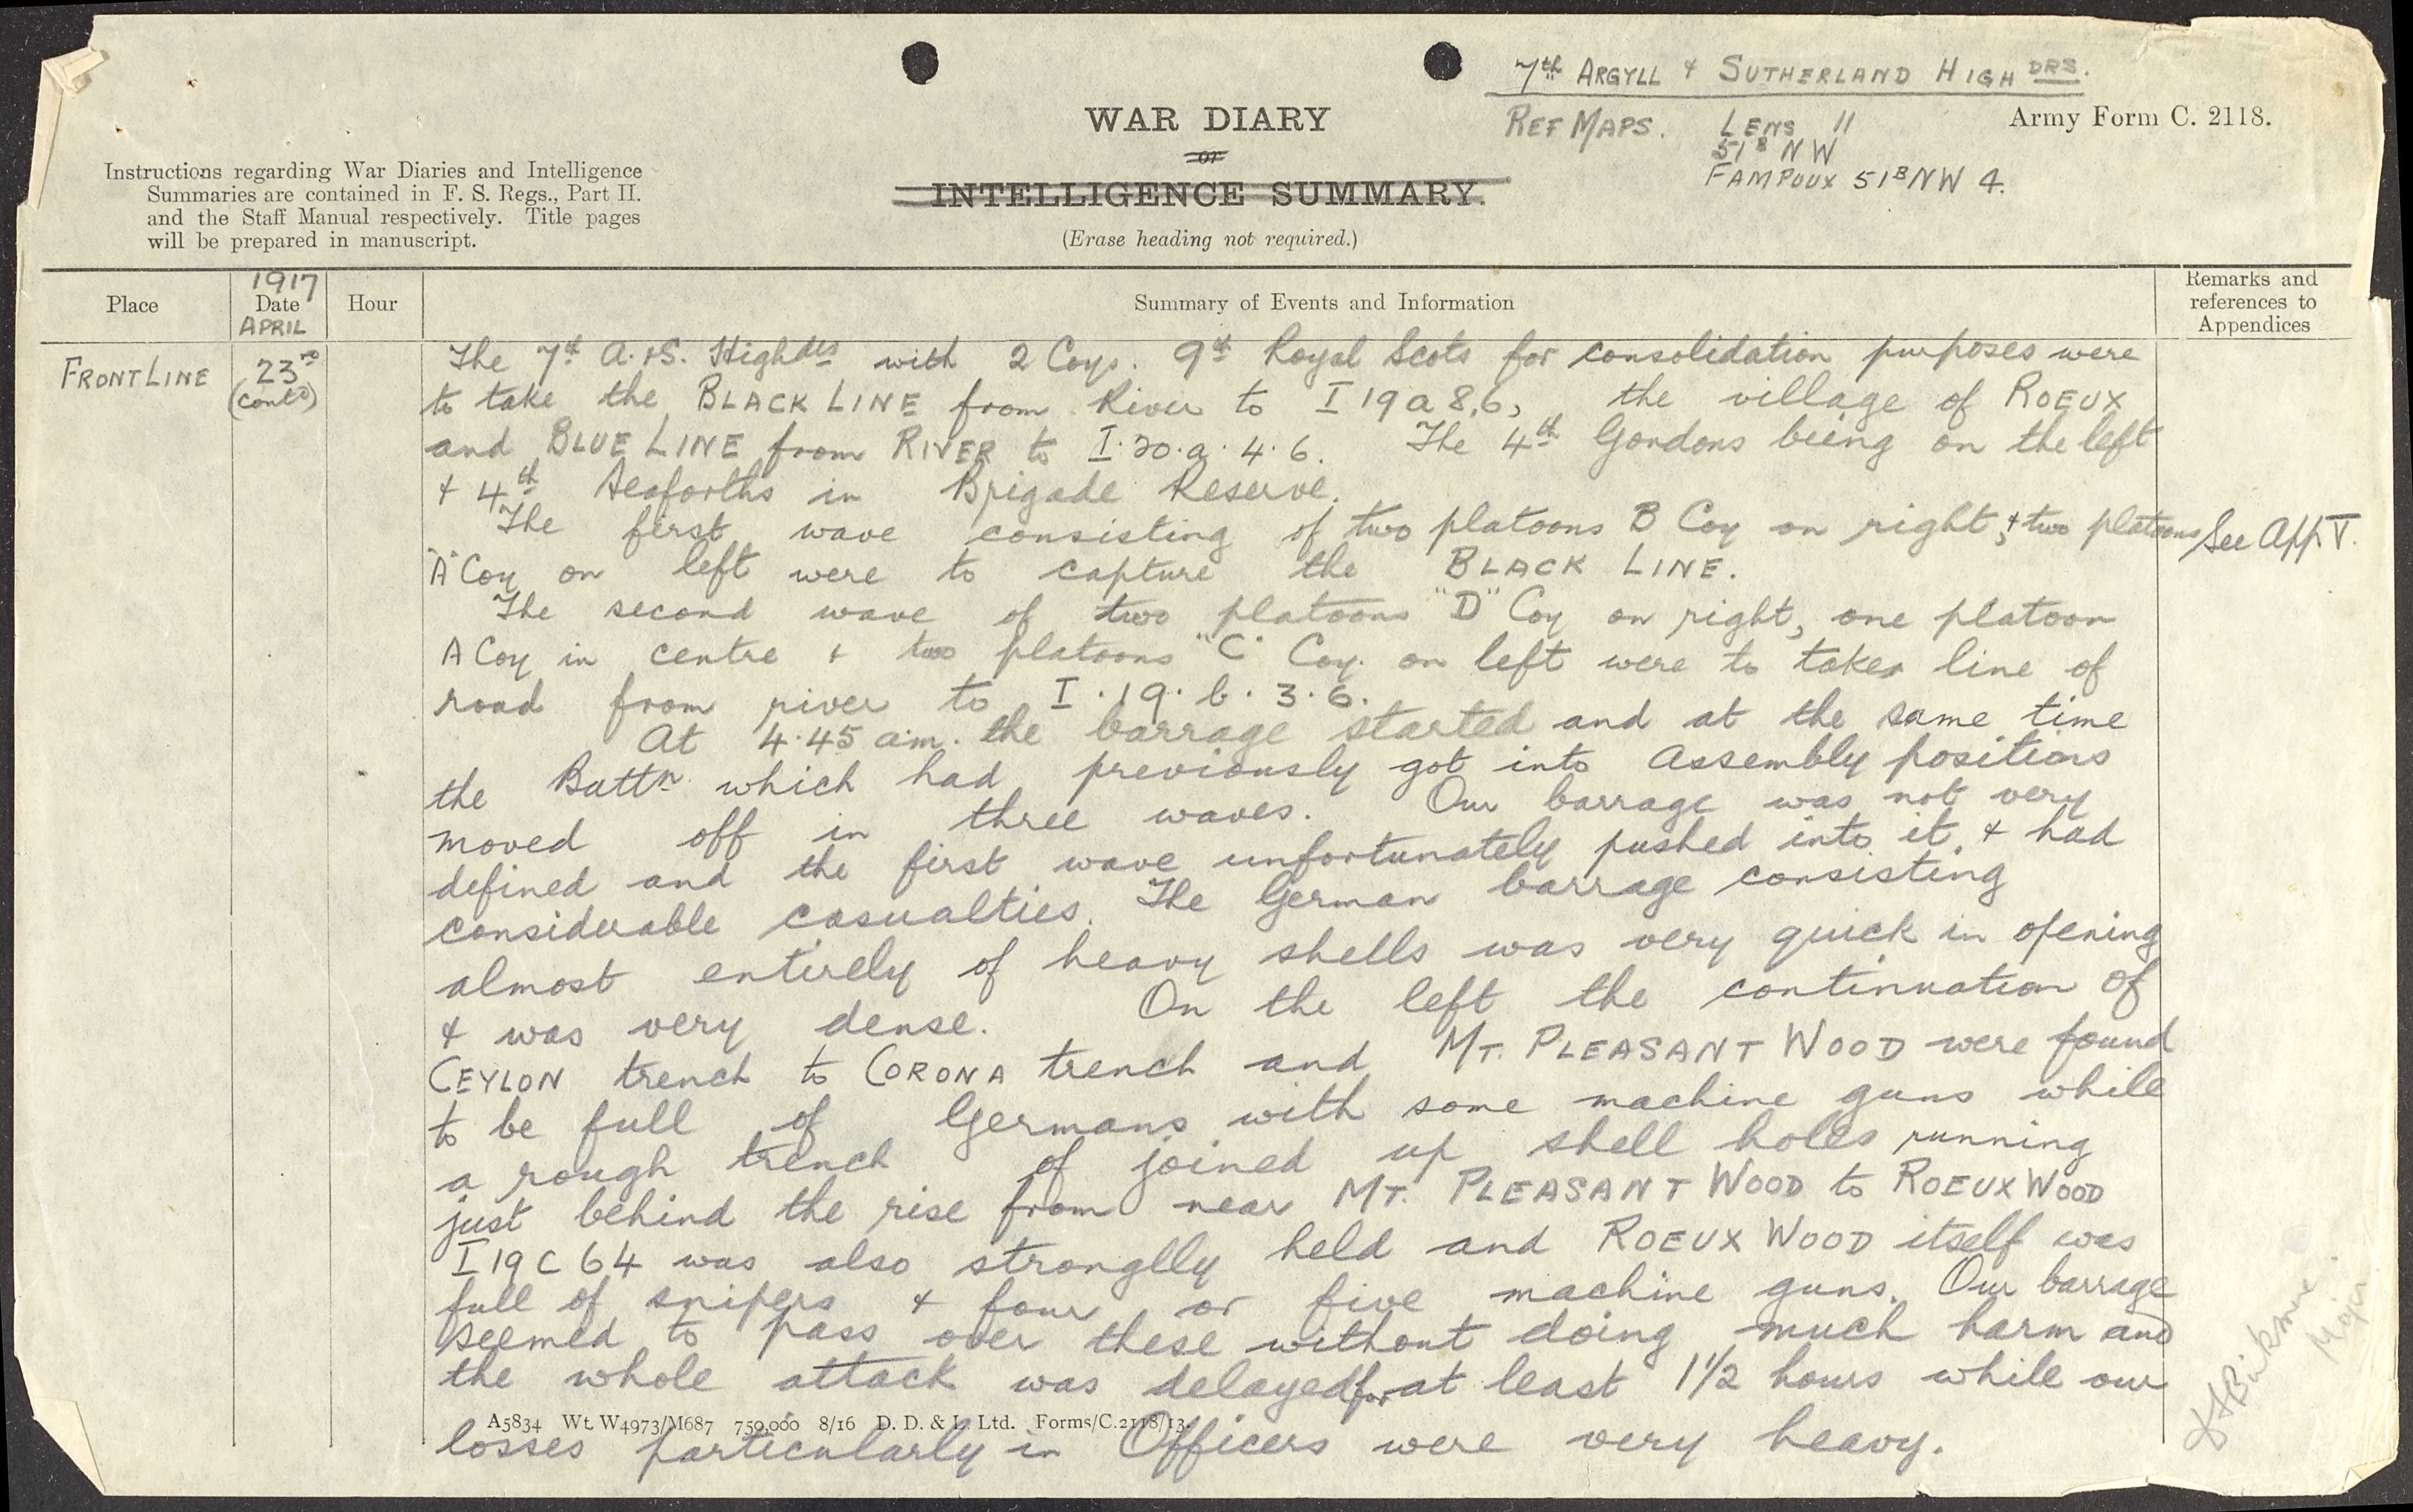 7th ARGYLL & SUTHERLAND HIGHDRS.
WAR DIARY
or
INTELLIGENCE SUMMARY.
(Erase heading not required.)
REF MAPS. LENS 11
51B NW
FAMPOUX 51B NW 4.
Army Form C. 2118.
Instructions regarding War Diaries and Intelligence
Summaries are contained in F. S. Regs., Part II.
and the Staff Manual respectively. Title pages
will be prepared in manuscript.
Place
1917
Date
APRIL
Hour
Summary of Events and Information
Remarks and
references to
Appendices
FRONT LINE
23rd
(contd)
The 7th A. & S. Highdrs with 2 Coys. 9th Royal Scots for consolidation purposes were
to take the BLACK LINE from River to I 19 a 8.6, the village of ROEUX
and BLUE LINE from RIVER to I. 20. a. 4. 6. The 4th Gordons being on the left
& 4th Seaforths in Brigade Reserve.
The first wave consisting of two platoons B Coy on right, & two platoons
"A" Coy on left were to capture the BLACK LINE.
See App V.
The second wave of two platoons "D" Coy on right, one platoon
A Coy in centre & two platoons "C" Coy. on left were to take line of
road from river to I. 19. b. 3. 6.
At 4.45 am. the barrage started and at the same time
the Battn. which had previously got into Assembly positions
moved off in three waves. Our barrage was not very
defined and the first wave unfortunately pushed into it, & had
considerable casualties. The German barrage consisting
almost entirely of heavy shells was very quick in opening
& was very dense. On the left the continuation of
CEYLON trench to CORONA trench and MT. PLEASANT WOOD were found
to be full of Germans with some machine guns while
a rough trench of joined up shell holes running
just behind the rise from near MT. PLEASANT WOOD to ROEUX WOOD
I 19 C 64 was also stronglly held and ROEUX WOOD itself was
full of snipers & four or five machine guns. Our barrage
seemed to pass over these without doing much harm and
the whole attack was delayed for at least 1 1/2 hours while our
losses particularly in Officers were very heavy.
A5834 Wt. W4973/M687 750,000 8/16 D. D. & L. Ltd. Forms/C.2118/13.
Major